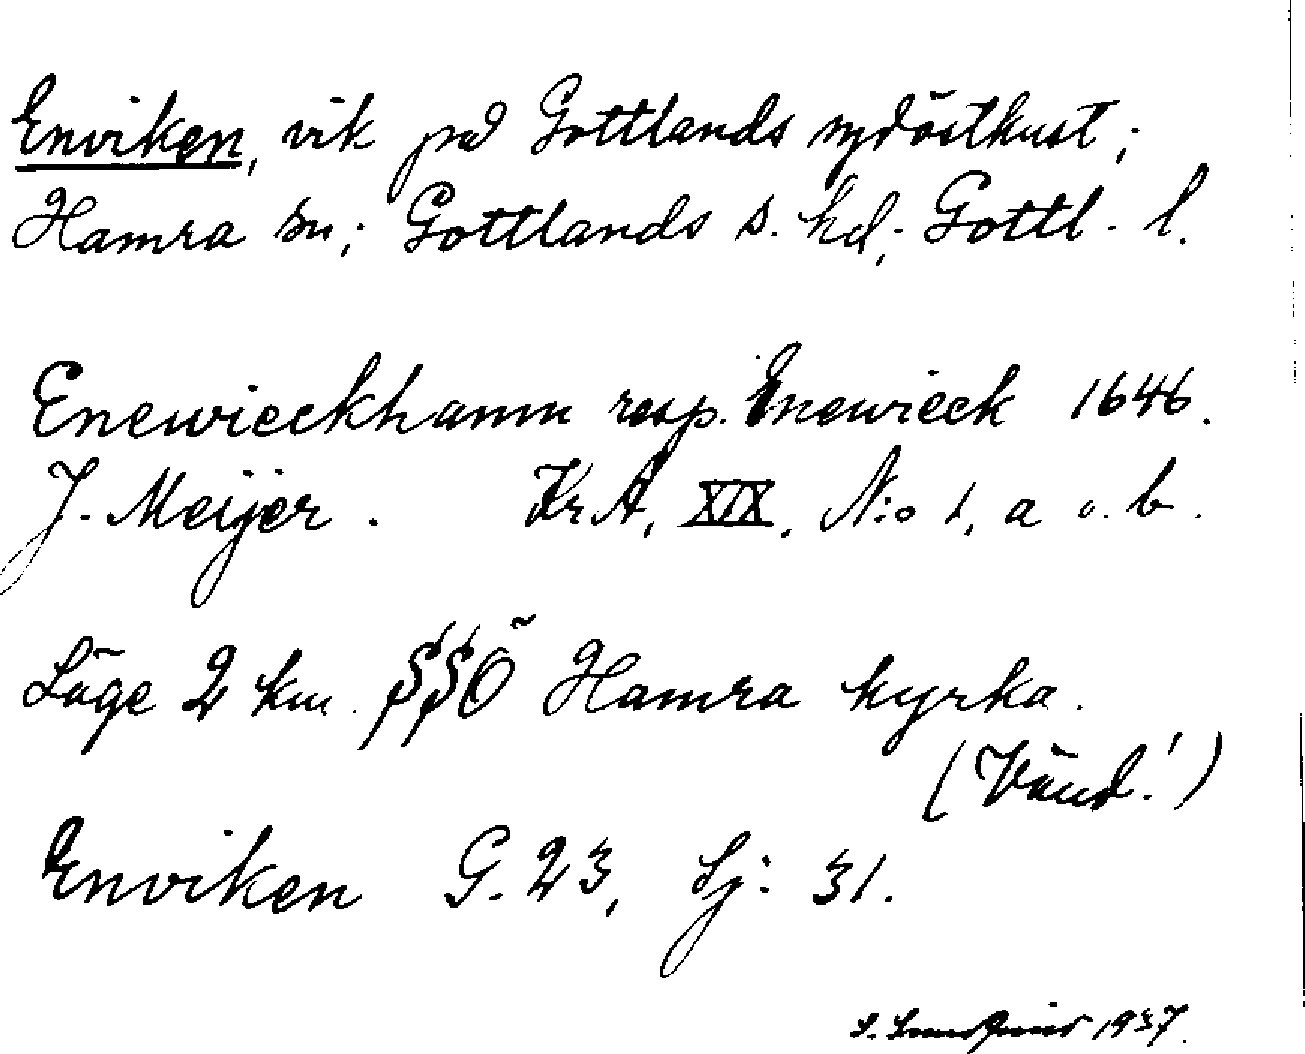 Enviken, vik på Gottlands sydöstkust;
Hamra sn; Gottlands s. hd; Gottl. l.
Enewieckhamn resp. Enewieck 1646.
J. Meijer. KrA, XIX, N:o 1, a o. b.
Läge 2 km. SSÖ Hamra kyrka.
(Vänd!)
Enviken G. 23, Sj: 31.
1937.